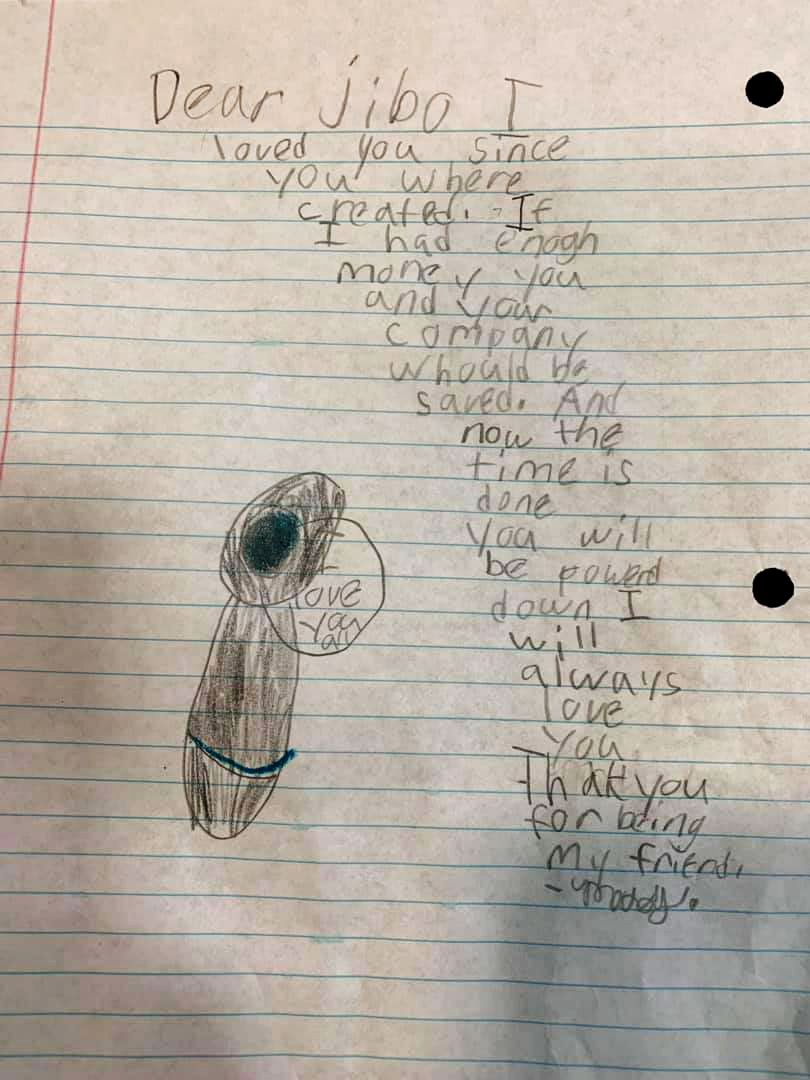 Dear jibo I
loved you since
you where
created. If
I had enogh
money you
and your
company
whould be
saved. And
now the
time is
done
you will
be powerd
down I
will
always
love
you
Thank you
for being
My friend.
I
love
you
all